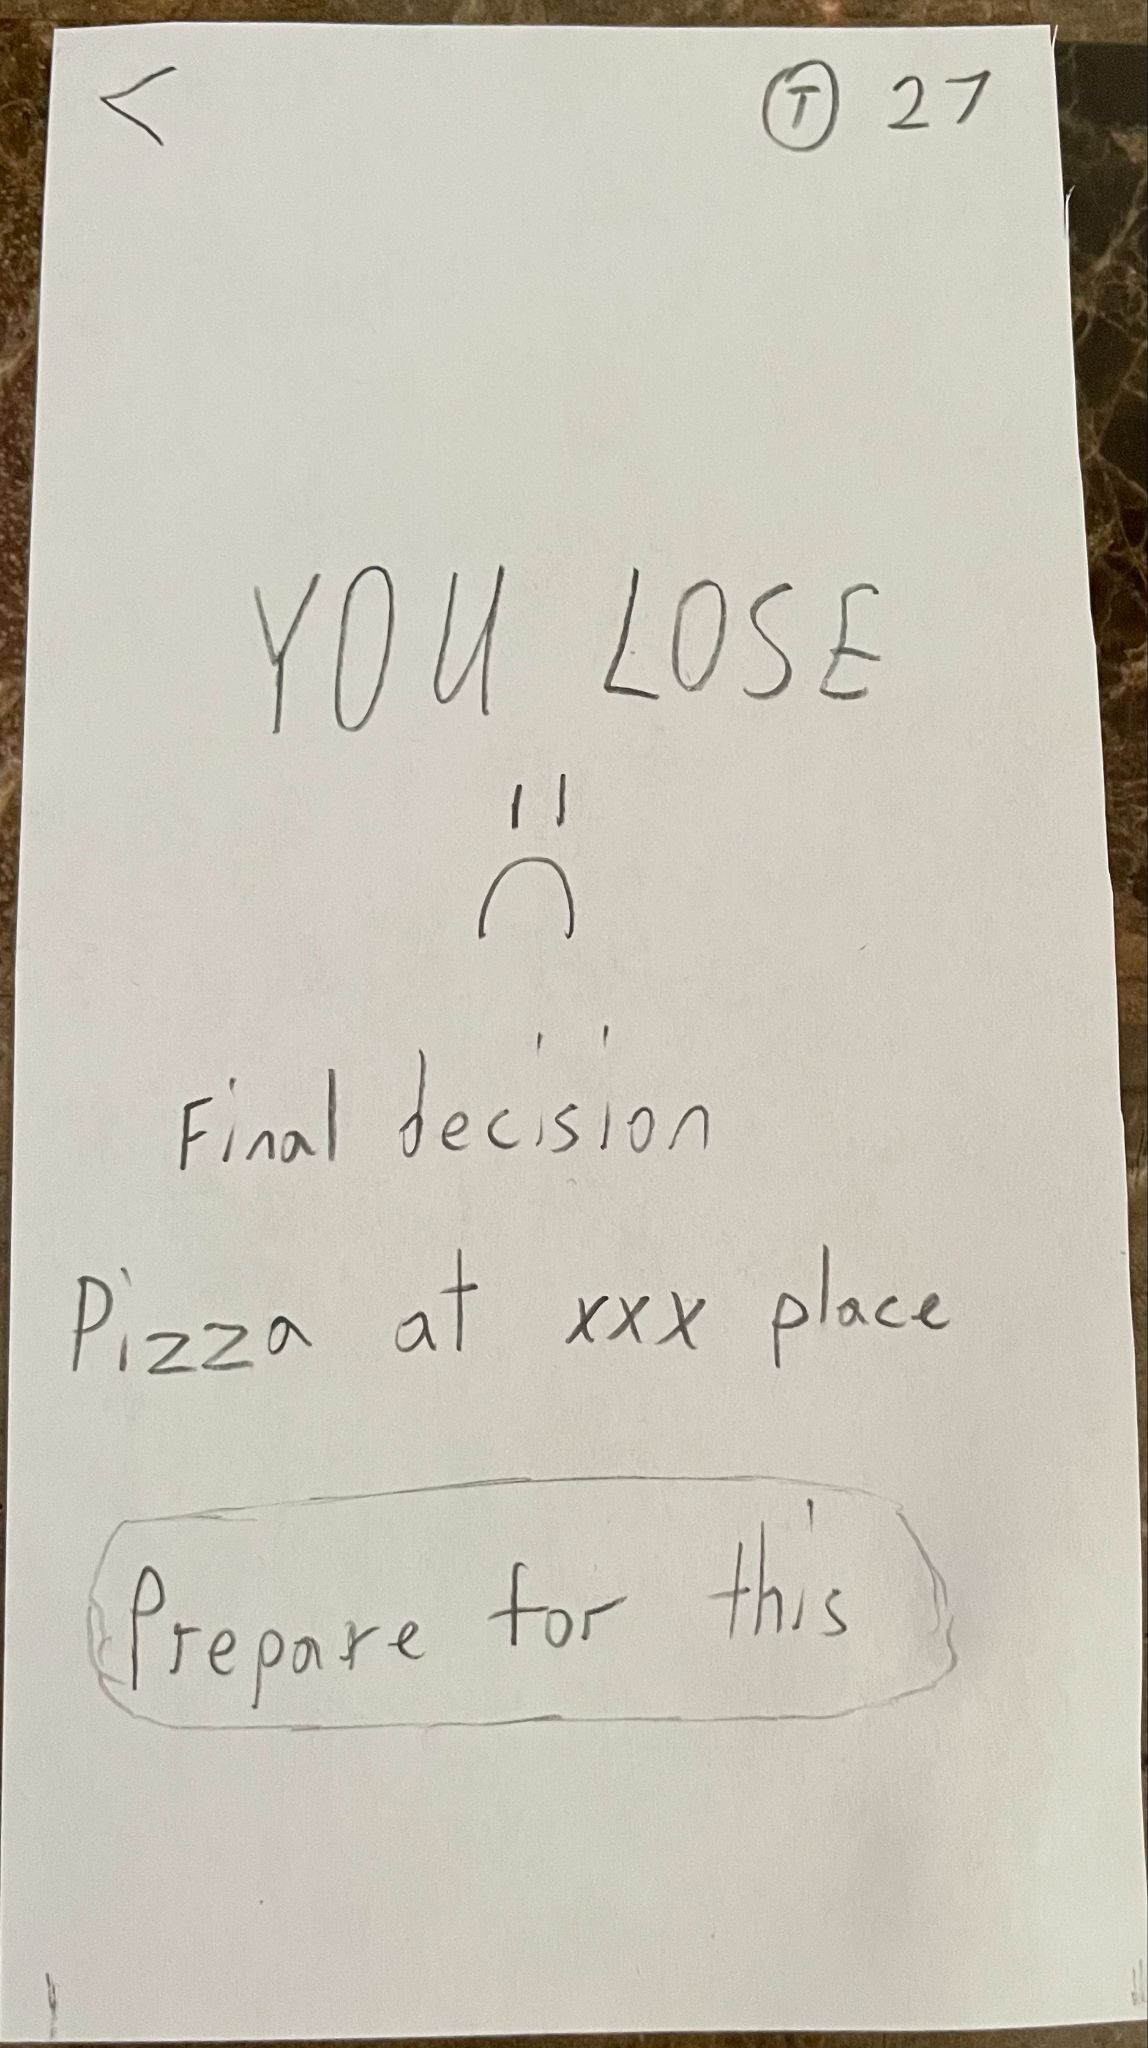 < T 27
YOU LOSE
Final decision
Pizza at xxx place
Prepare for this